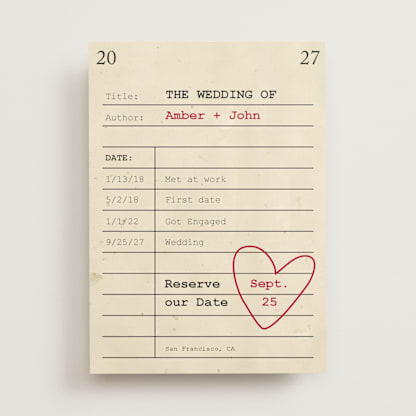 20 27
Title: THE WEDDING OF
Author: Amber + John
DATE:
1/13/18 Met at work
5/2/18 First date
1/1/22 Got Engaged
9/25/27 Wedding
Reserve Sept.
our Date 25
San Francisco, CA